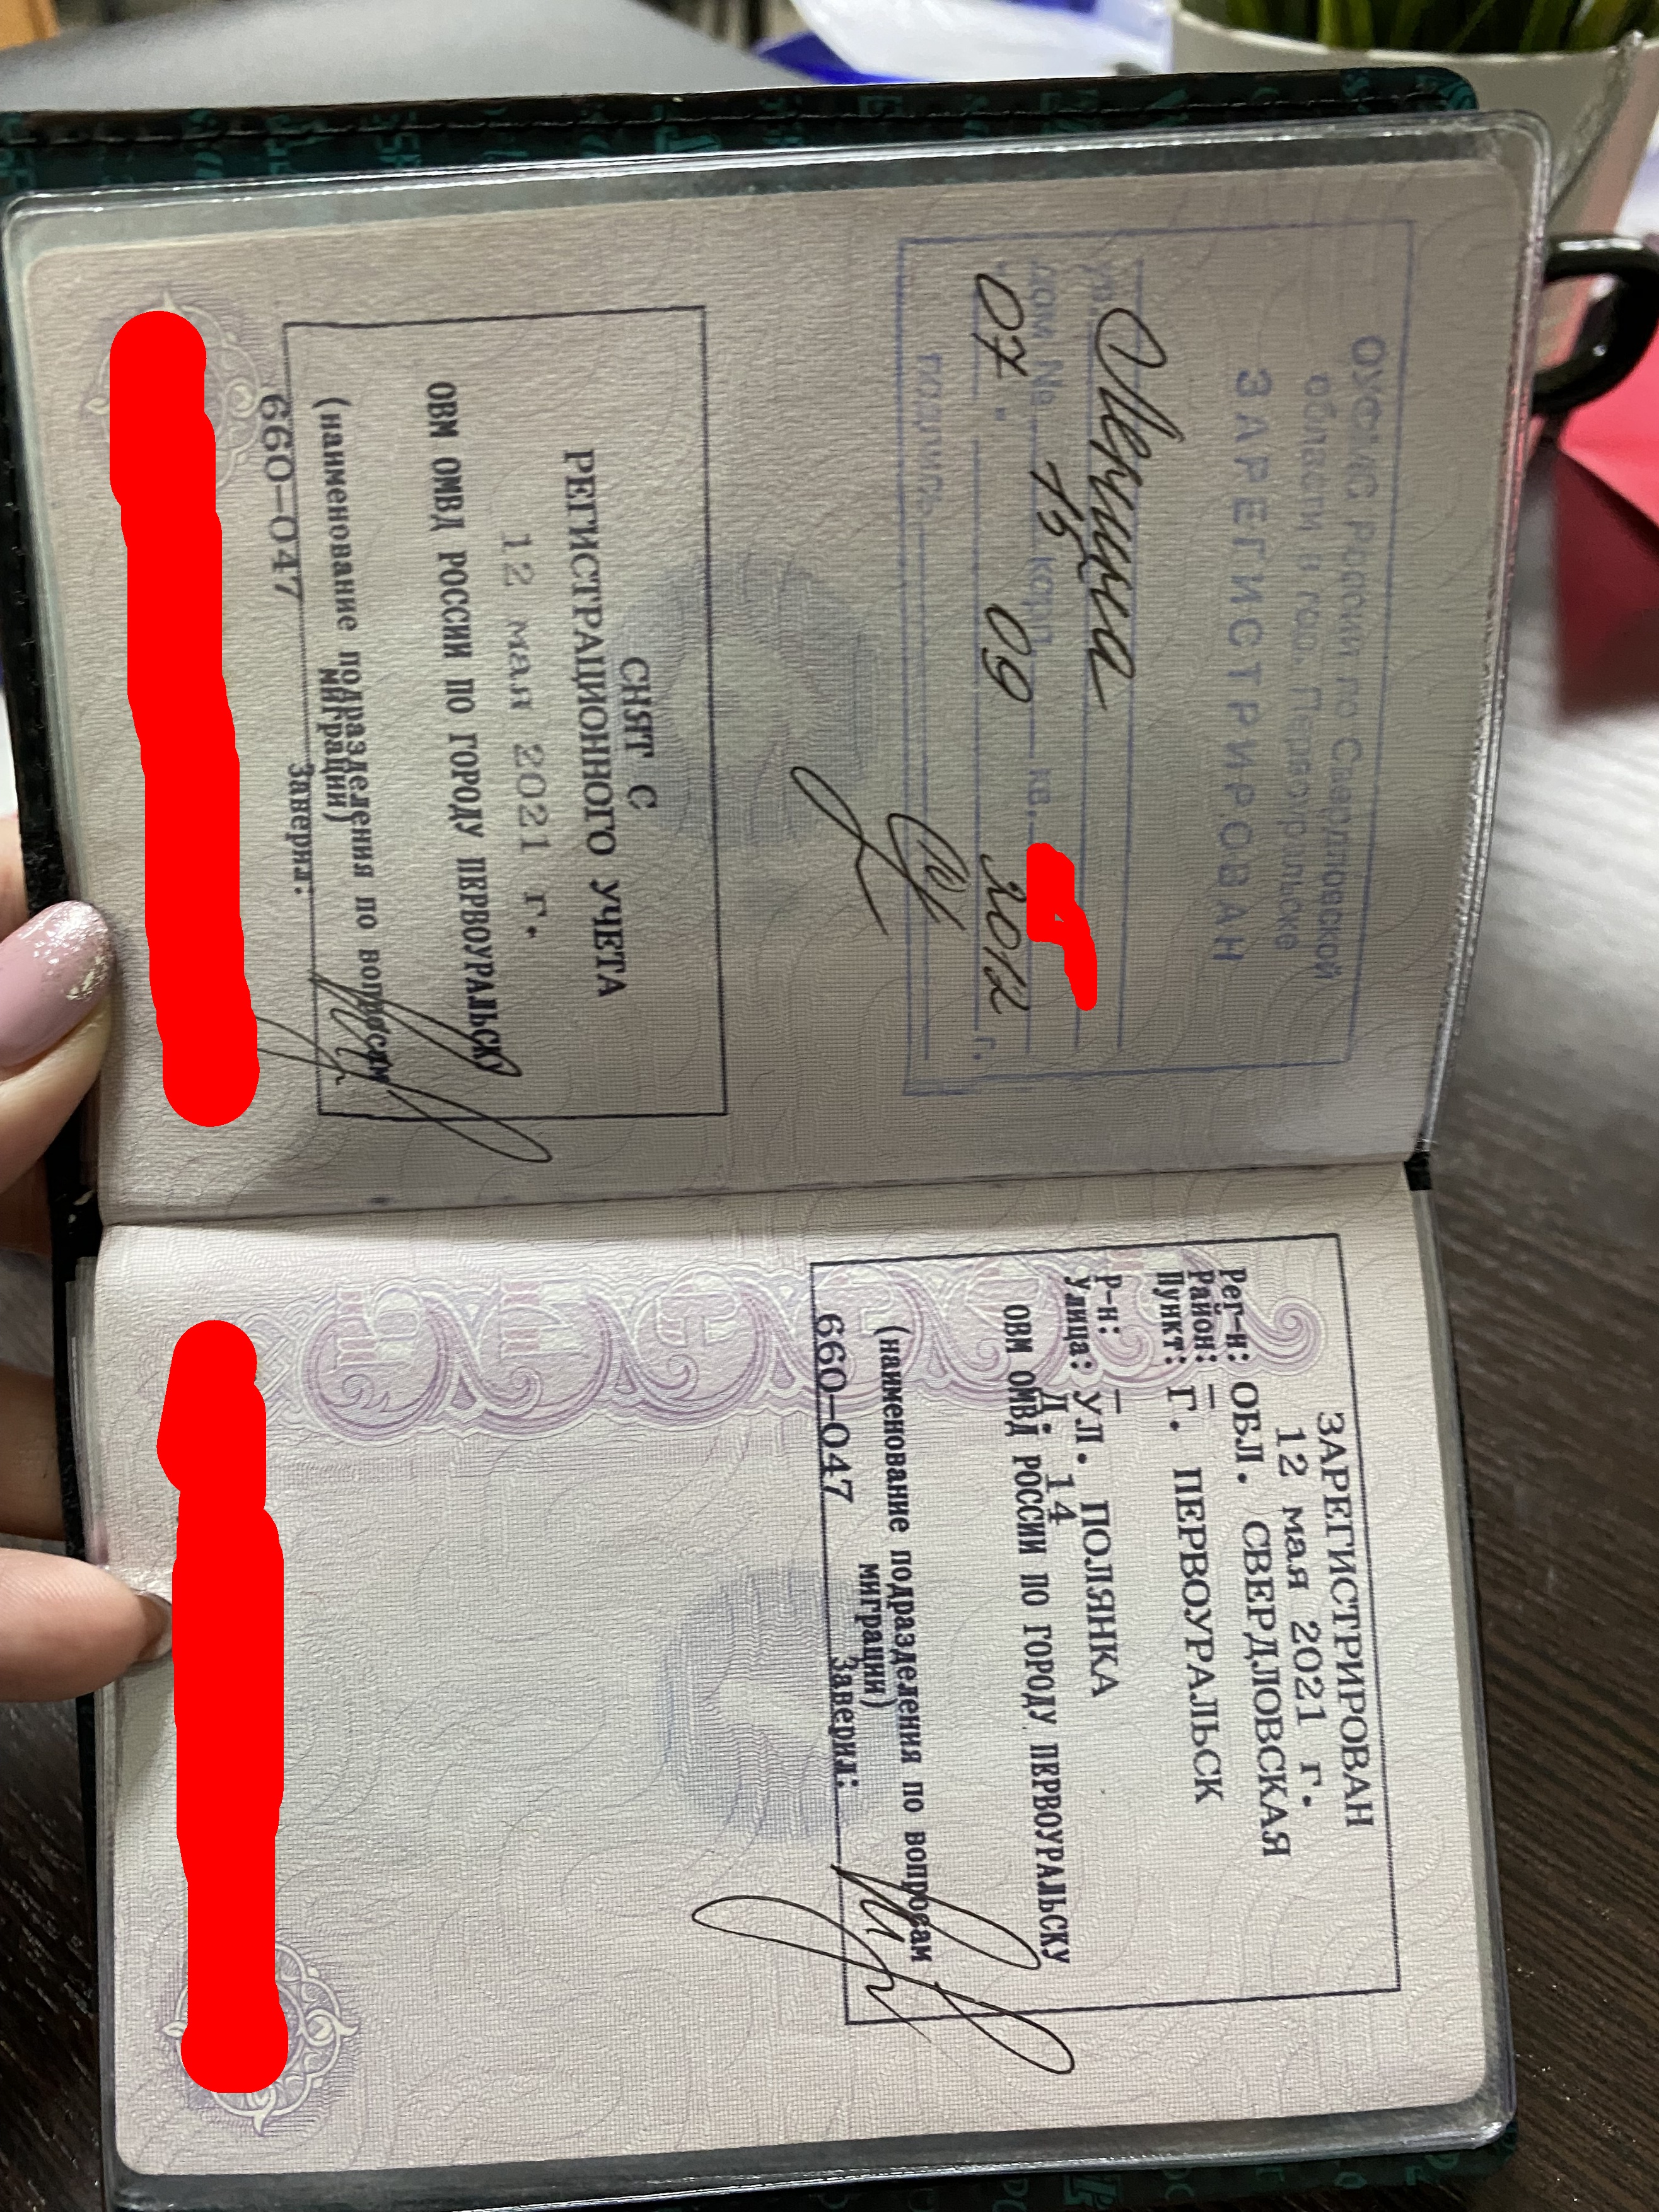 ОУФМС России по Свердловской
области в гор. Первоуральске
ЗАРЕГИСТРИРОВАН
ул. Ленина
дом № 15 корп. кв.
07. 09 2012 г.
подпись
СНЯТ С
РЕГИСТРАЦИОННОГО УЧЕТА
12 мая 2021 г.
ОВМ ОМВД РОССИИ ПО ГОРОДУ ПЕРВОУРАЛЬСКУ
(наименование подразделения по вопросам
миграции)
660-047 Заверил:
ЗАРЕГИСТРИРОВАН
12 мая 2021 г.
Рег-н: ОБЛ. СВЕРДЛОВСКАЯ
Район: –
Пункт: Г. ПЕРВОУРАЛЬСК
Р-н: –
Улица: УЛ. ПОЛЯНКА
Д. 14
ОВМ ОМВД РОССИИ ПО ГОРОДУ ПЕРВОУРАЛЬСКУ
(наименование подразделения по вопросам
миграции)
660-047 Заверил: